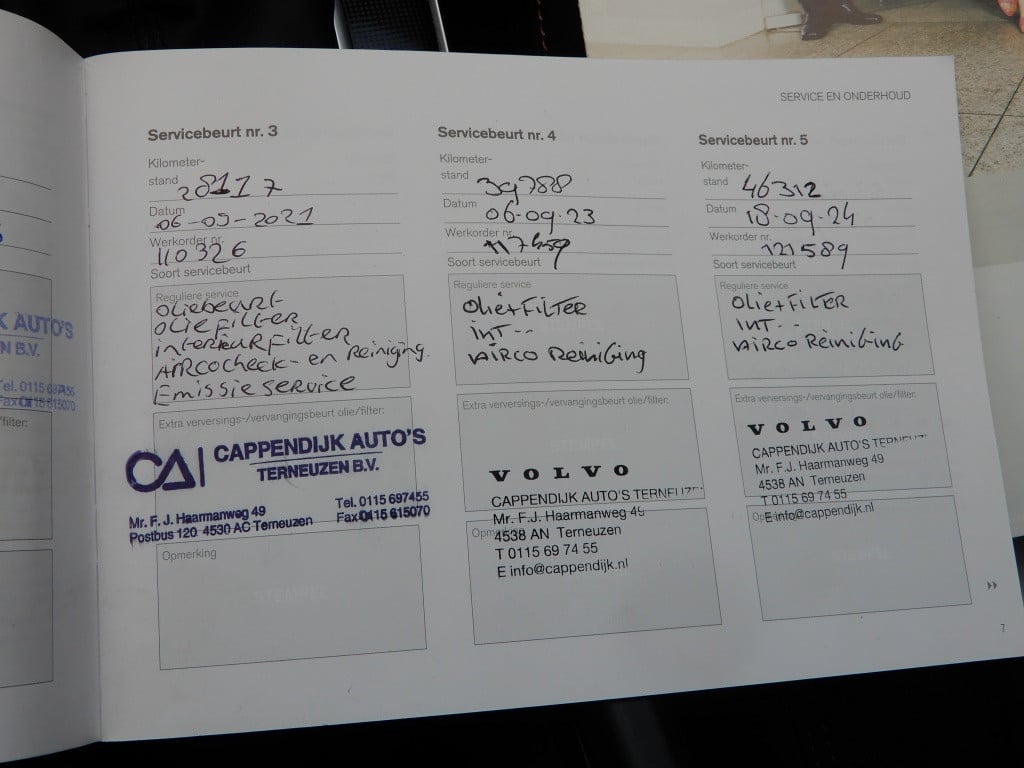 SERVICE EN ONDERHOUD
Servicebeurt nr. 3
Kilometer-
stand 28117
Datum 06-09-2021
Werkorder nr. 110326
Soort servicebeurt
Reguliere service
Oliebeurt
Oliefilter
interieurfilter
AIRCOcheck- en Reiniging
Emissieservice
Extra verversings-/vervangingsbeurt olie/filter:
CA CAPPENDIJK AUTO'S
TERNEUZEN B.V.
Mr. F. J. Haarmanweg 49 Tel. 0115 697455
Postbus 120 4530 AC Terneuzen Fax 0115 615070
Opmerking
STEMPEL
Servicebeurt nr. 4
Kilometer-
stand 39788
Datum 06-09-23
Werkorder nr. 117459
Soort servicebeurt
Reguliere service
Olie+FILTER
INT--
AIRCO Reiniging
Extra verversings-/vervangingsbeurt olie/filter:
STEMPEL
VOLVO
CAPPENDIJK AUTO'S TERNEUZEN
Mr. F.J. Haarmanweg 49
Opmerking
4538 AN Terneuzen
T 0115 69 74 55
E info@cappendijk.nl
Servicebeurt nr. 5
Kilometer-
stand 46312
Datum 18-09-24
Werkorder nr. 121589
Soort servicebeurt
Reguliere service
Olie+FILTER
INT--
AIRCO Reiniging
Extra verversings-/vervangingsbeurt olie/filter:
VOLVO
CAPPENDIJK AUTO'S TERNEUZEN
Mr. F.J. Haarmanweg 49
4538 AN Terneuzen
T 0115 69 74 55
E info@cappendijk.nl
STEMPEL
7
K AUTO'S
EN B.V.
Tel. 0115 697455
Fax 0115 615070
filter: